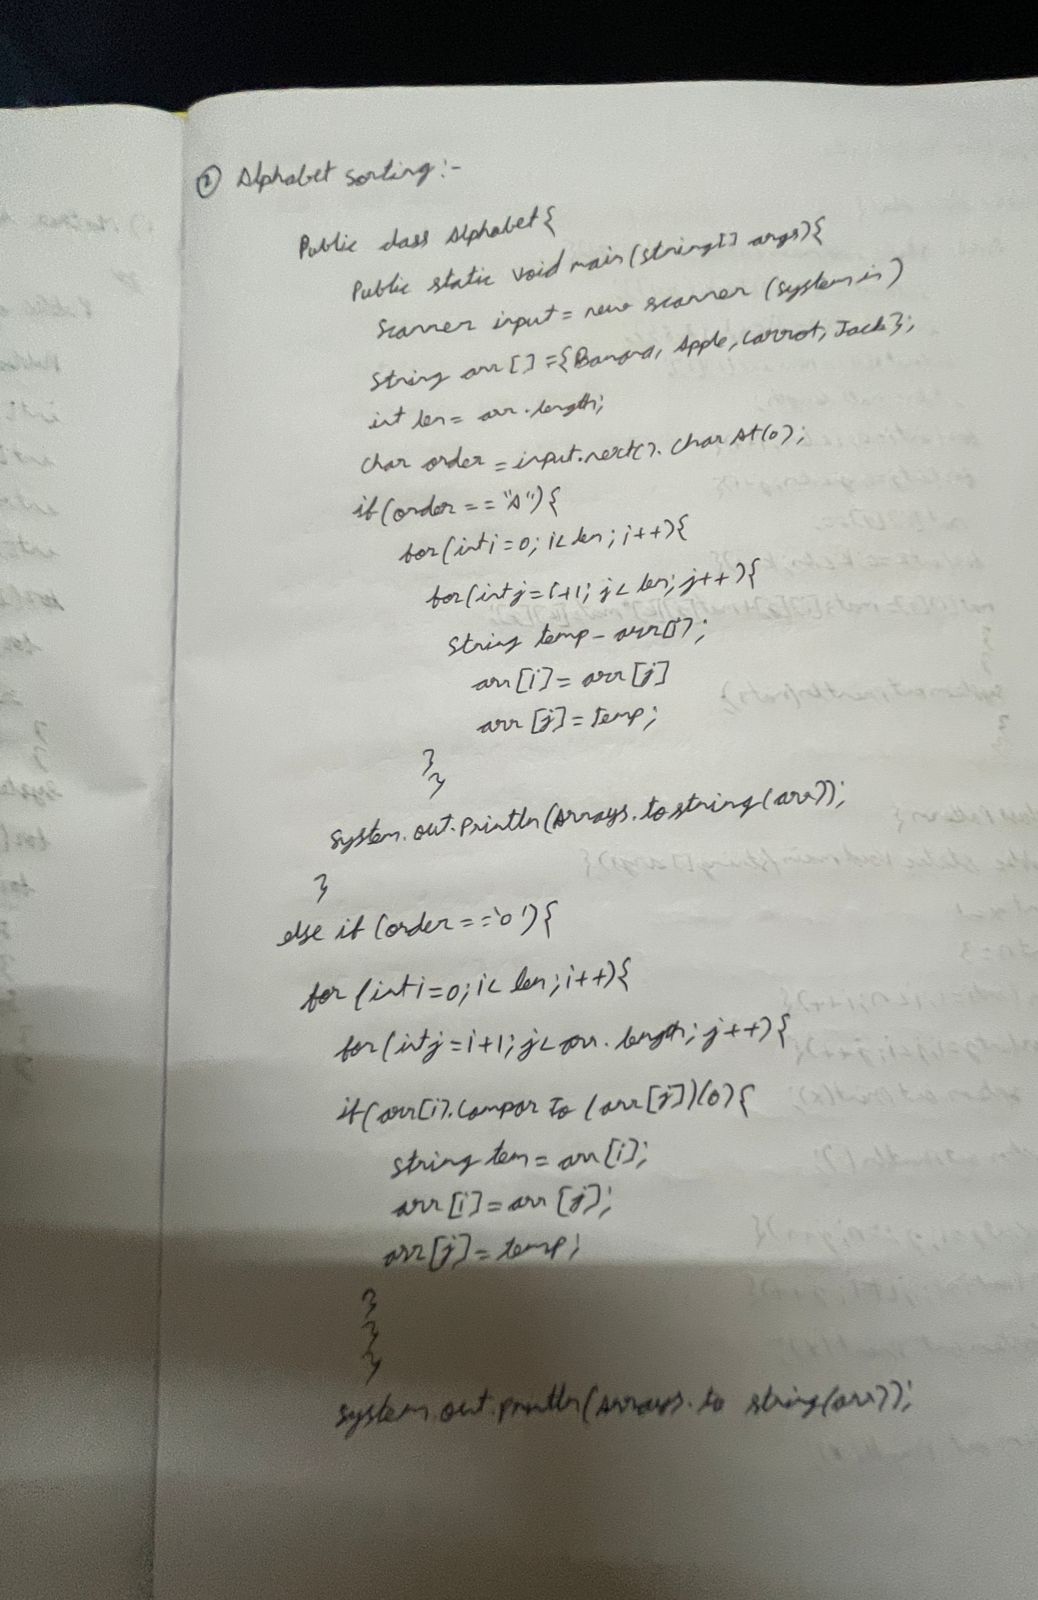 ② Alphabet sorting:-
Public class Alphabet{
Public static void main(string[] args){
Scanner input = new scanner (system.in)
String arr [] ={Banana, Apple, Carrot, Jack};
int len = arr.length;
Char order = input.next(). Char At(0);
if(order == "A"){
for(int i=0; i<len; i++){
for(int j=i+1; j<len; j++){
String temp - arr[i];
arr [i] = arr [j]
arr [j] = temp;
}
}
system.out.Println(Arrays.to string(arr));
}
else if (order == 'o'){
for (int i=0; i< len; i++){
for(int j=i+1; j<arr. length; j++){
if(arr[i].Compar To (arr[j])(0){
string tem = arr[i];
arr [i] = arr [j];
arr[j] = temp;
}
}
}
system.out.println(Arrays. to string(arr));